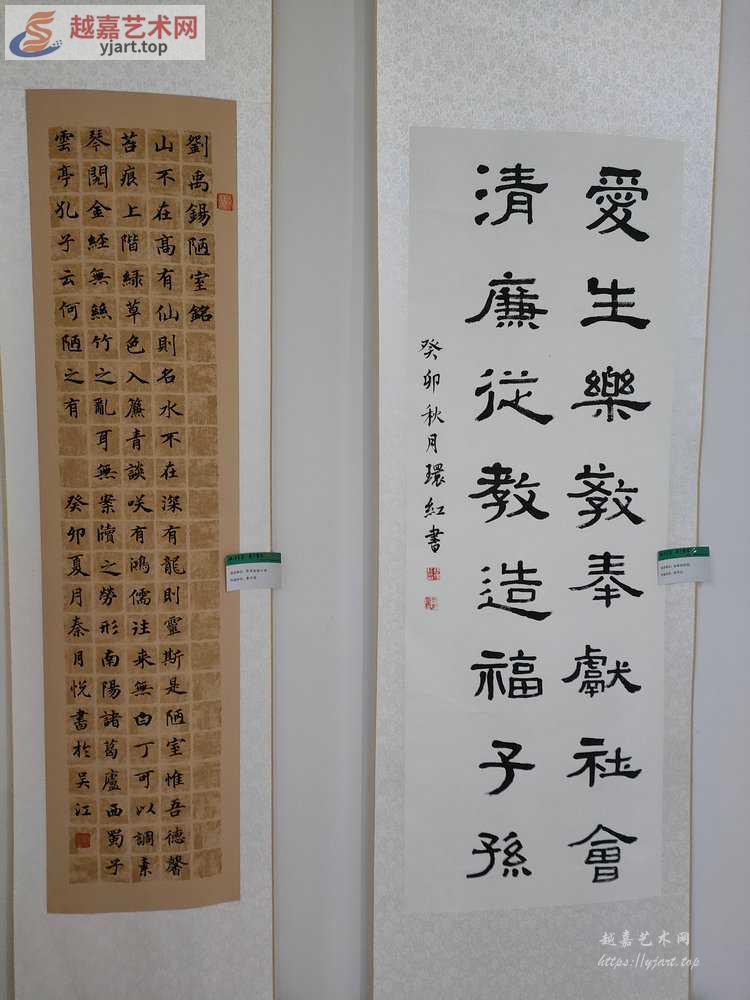 越嘉艺术网
yjart.top
劉禹錫陋室銘
山不在高有仙則名水不在深有龍則靈斯是陋室惟吾德馨
苔痕上階緑草色入簾青談咲有鴻儒往来無白丁可以調素
琴閲金経無絲竹之亂耳無案牘之勞形南陽諸葛廬西蜀子
雲亭孔子云何陋之有
癸卯夏月秦月悦書於吴江
愛生樂教奉獻社會
清廉從教造福子孫
癸卯秋月環紅書
越嘉艺术网
https://yjart.top